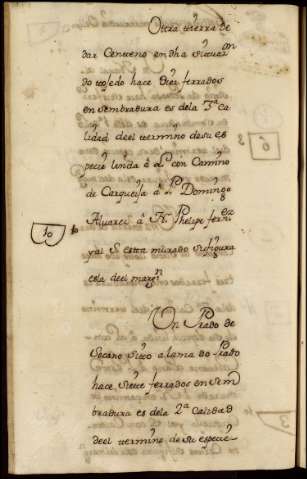 Ottra tierra de
dar Centeno en dha Situaz.on
do tojedo hace Diez ferrados
en sembradura es dela 3.a Ca
lidad deel termino desu es
pecie linda á L.e con Camino
de Carqueisa á P.te Domingo
Alvarez á N. Phelipe fern.ez
yál S. esttá murado su figura
esla deel marg.n
10
Un Prado de
Secano Sitto alama do Prado
hace Siette ferrados en Sem
bradura es dela 2.a Calidad
deel termino de su especie